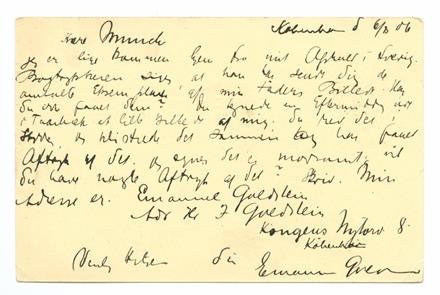 Kjære Munch København d 6/2 06
Jeg er lige kommen hjem fra mit Ophold i Sverig.
Bogtrykkeren siger, at han har sendt dig de
ønskede Exemplarer af min Faders Billede. Har
du ikke faaet dem? Du tegnede en Eftermiddag
i Taarbæk et lille Billede af mig. Du rev det i
Stykker, jeg klistrede det sammen og har faaet
Aftryk af det. Jeg synes det er morsomt. Vil
du have nogle Aftryk af det? Skriv. Min
Adresse er. Emanuel Goldstein
Adr Hr J Goldstein
Kongens Nytorv 8.
København
Venlig Hilsen Din Emanuel